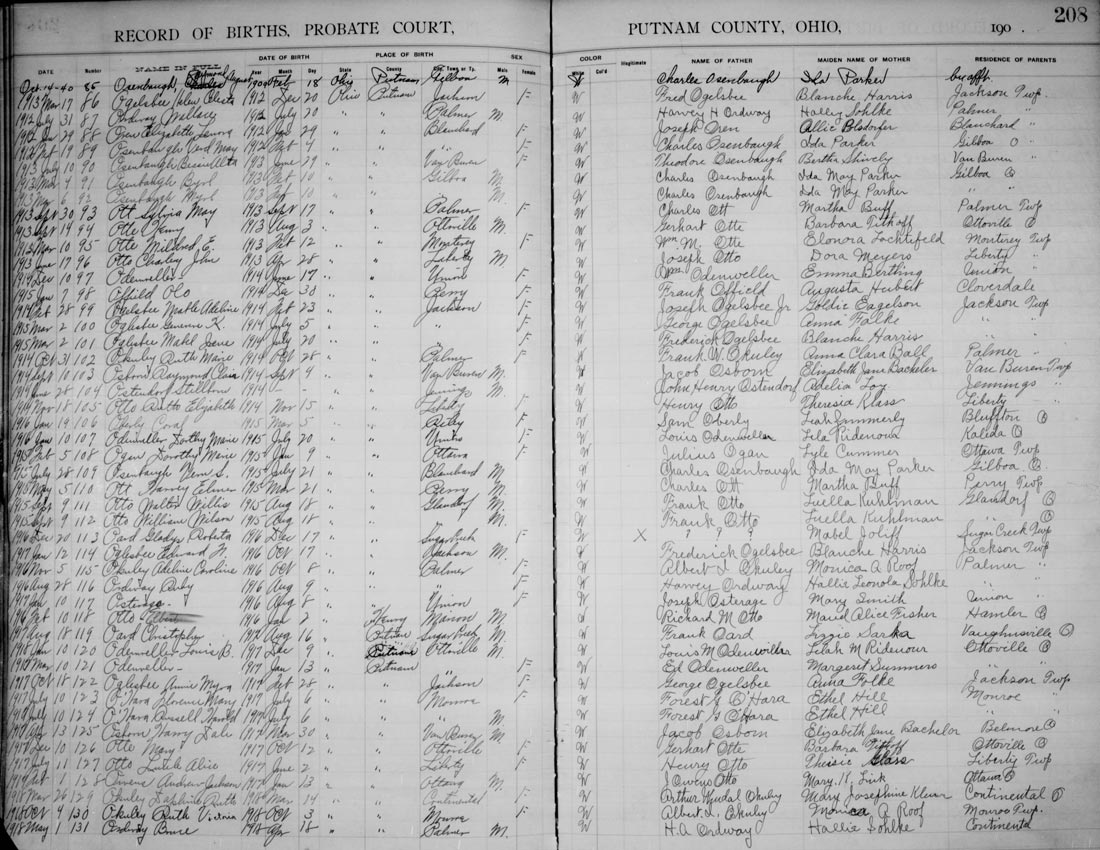 208
RECORD OF BIRTHS, PROBATE COURT, PUTNAM COUNTY, OHIO, 190 .
DATE OF BIRTH PLACE OF BIRTH SEX COLOR
DATE Number NAME IN FULL Year Month Day State County Town or Tp. Male Female White Col'd Illegitimate NAME OF FATHER MAIDEN NAME OF MOTHER RESIDENCE OF PARENTS
Oct 14-40 85 Osenbaugh, Charles 1909 Feb 18 Ohio Putnam Gilboa M W Charles Osenbaugh Ida Parker by afft.
1913 Mar 17 86 Ogelsbee Helen 1912 Dec 20 Ohio Putnam Jackson F W Fred Ogelsbee Blanche Harris Jackson Twp.
1912 July 31 87 Ordway Wallace 1912 July 20 " " Palmer M W Harvey H Ordway Halley Sohlke Palmer "
88 Oren Elizabeth Lenora 1912 Jan 29 " " Blanchard F W Joseph Oren Allie Blanchard "
89 Osenbaugh Verd May 1912 Oct 4 " " " F W Charles Osenbaugh Ida Parker Gilboa O "
1913 July 10 90 Osenbaugh 1913 June 29 " " Van Buren F W Theodore Osenbaugh Bertha Shively Van Buren "
91 Osenbaugh Byrl 1913 10 " " Gilboa M W Charles Osenbaugh Ida May Parker Gilboa O
92 Osenbaugh Myrl 1913 10 " " " M W Charles Osenbaugh Ida May Parker " "
1913 Sept 30 93 Ott Sylvia May 1913 Sept 17 " " Palmer F W Charles Ott Martha Buff Palmer Twp
1913 Sept 19 94 Otte Henry 1913 Aug 3 " " Ottoville M W Gerhart Otte Barbara Tithoff Ottoville O
1913 Mar 10 95 Otte Mildred E. 1913 Feb 12 " " Monterey F W Wm M. Otte Elonora Lochtefeld Monterey Twp
1913 June 17 96 Otto Charley John 1913 Apr 28 " " Liberty M W Joseph Otto Dora Meyers Liberty "
1914 Dec 10 97 Odenweller 1914 June 17 " " Union F W Odenweller Emma Berthing Union "
1915 Jan 7 98 Offield Olo 1914 Dec 30 " " Perry F W Frank Offield Augusta Hubert Cloverdale
1914 Feb 28 99 Ogelsbee Mable Adeline 1914 Feb 23 " " Jackson F W Joseph Ogelsbee Jr Goldie Eagelson Jackson Twp
1915 Mar 2 100 Oglesbee Generva K. 1914 July 5 " " " F W George Ogelsbee Anna Falke " "
1915 Mar 2 101 Oglesbee Mabel Irene 1914 July 20 " " " F W Frederick Ogelsbee Blanche Harris " "
1914 Oct 31 102 Okuley Ruth Marie 1914 Oct 28 " " Palmer F W Frank W. Okuley Anna Clara Ball Palmer "
1914 Sept 10 103 Osborn Raymond 1914 Sept 4 " " Van Buren M W Jacob Osborn Elizabeth Jane Bacheler Van Buren Twp
1914 June 28 104 Ostendorf Stillborn 1914 - - " " Jennings M W John Henry Ostendorf Adelia Foy Jennings "
1914 Nov 18 105 Otto Elizabeth 1914 Nov 15 " " Liberty F W Henry Otto Theresia Klass Liberty "
1916 Jan 19 106 Oberly Coral 1915 Mar 5 " " Riley F W Sam Oberly Leah Emmerly Bluffton O
1916 Jan 10 107 Odenweller Dorthy Marie 1915 July 20 " " Union F W Louis Odenweller Lila Ridenour Kalida O
1915 Feb 5 108 Ogan Dorothy Marie 1915 Jan 9 " " Ottawa F W Julius Ogan Lyle Cummer Ottawa Twp
1915 July 28 109 Osenbaugh Vern S. 1915 July 21 " " Blanchard M W Charles Osenbaugh Ida May Parker Gilboa O
1915 May 5 110 Ott Harvey Elmer 1915 Mar 21 " " Perry M W Charles Ott Martha Buff Perry Twp
1915 Sept 9 111 Otto Walter Willis 1915 Aug 18 " " Glandorf M W Frank Otto Luella Kuhlman Glandorf O
1915 Sept 9 112 Otto William Wilson 1915 Aug 18 " " " M W Frank Otto Luella Kuhlman " O
1916 Dec 20 113 Oard Gladys Roberta 1916 Dec 17 " " F W X ? ? ? Mabel Joliff Sugar Creek Twp
1917 Jan 12 114 Oglesbee Edward 1916 Oct 17 " " Jackson M W Frederick Ogelsbee Blanche Harris Jackson Twp
1916 Nov 5 115 Okuley Adeline Caroline 1916 Oct 8 " " Palmer F W Albert L Okuley Monica A Roof Palmer "
1916 Aug 28 116 Ordway Ruby 1916 Aug 9 " " " F W Harvey Ordway Hallie Leonola Sohlke " "
10 117 Osterage 1916 Aug 8 " " Union F W Joseph Osterage Mary Smith Union "
1916 Feb 10 118 Otto 1916 Jan 2 " Henry Marion M W Richard M Otto Maud Alice Fisher Hamler O
1917 Aug 18 119 Oard Christopher 1917 Aug 16 " Putnam M W Frank Oard Lizzie Sarka Vaughnsville O
10 120 Odenweller Louis B. 1917 Dec 9 " Putnam Ottoville M W Louis M Odenweller Lilah M Ridenour Ottoville O
Mar 10 121 Odenweller - 1917 Jan 13 " Putnam " F W Ed Odenweller Margaret Summers "
1917 Oct 18 122 Oglesbee Annie Myra 1917 Oct 28 " " Jackson F W George Oglesbee Anna Folke Jackson Twp
1917 July 10 123 O'Hara Florence Mary 1917 July 6 " " Monroe F W Forest G O'Hara Ethel Hill Monroe "
1917 July 10 124 O'Hara Russell Harold 1917 July 6 " " " M W Forest G O'Hara Ethel Hill " "
1917 Apr 13 125 Osborn Harry Dale 1917 Mar 30 " " Van Buren M W Jacob Osborn Elizabeth Jane Bachelor Belmore O
1917 Dec 10 126 Otte Mary 1917 Oct 12 " " Ottoville F W Gerhart Otte Barbara Tithoff Ottoville O
1917 July 11 127 Otto Alice 1917 June 2 " " Liberty F W Henry Otto Glass Liberty Twp
1 128 Owens Andrew Jackson 1917 Jan 13 " " Ottawa M W J Owens Otto Mary H. Link Ottawa O
1918 Mar 26 129 Okuley Ruth 1918 Mar 14 " " Continental F W Arthur Okuley Mary Josephine Continental O
1918 Oct 4 130 Okuley Ruth Victoria 1918 Oct 3 " " Monroe F W Albert L. Okuley Monica A Roof Monroe Twp.
1918 May 1 131 Ordway Bruce 1918 Apr 18 " " Palmer M. W H.A. Ordway Hallie Sohlke Continental